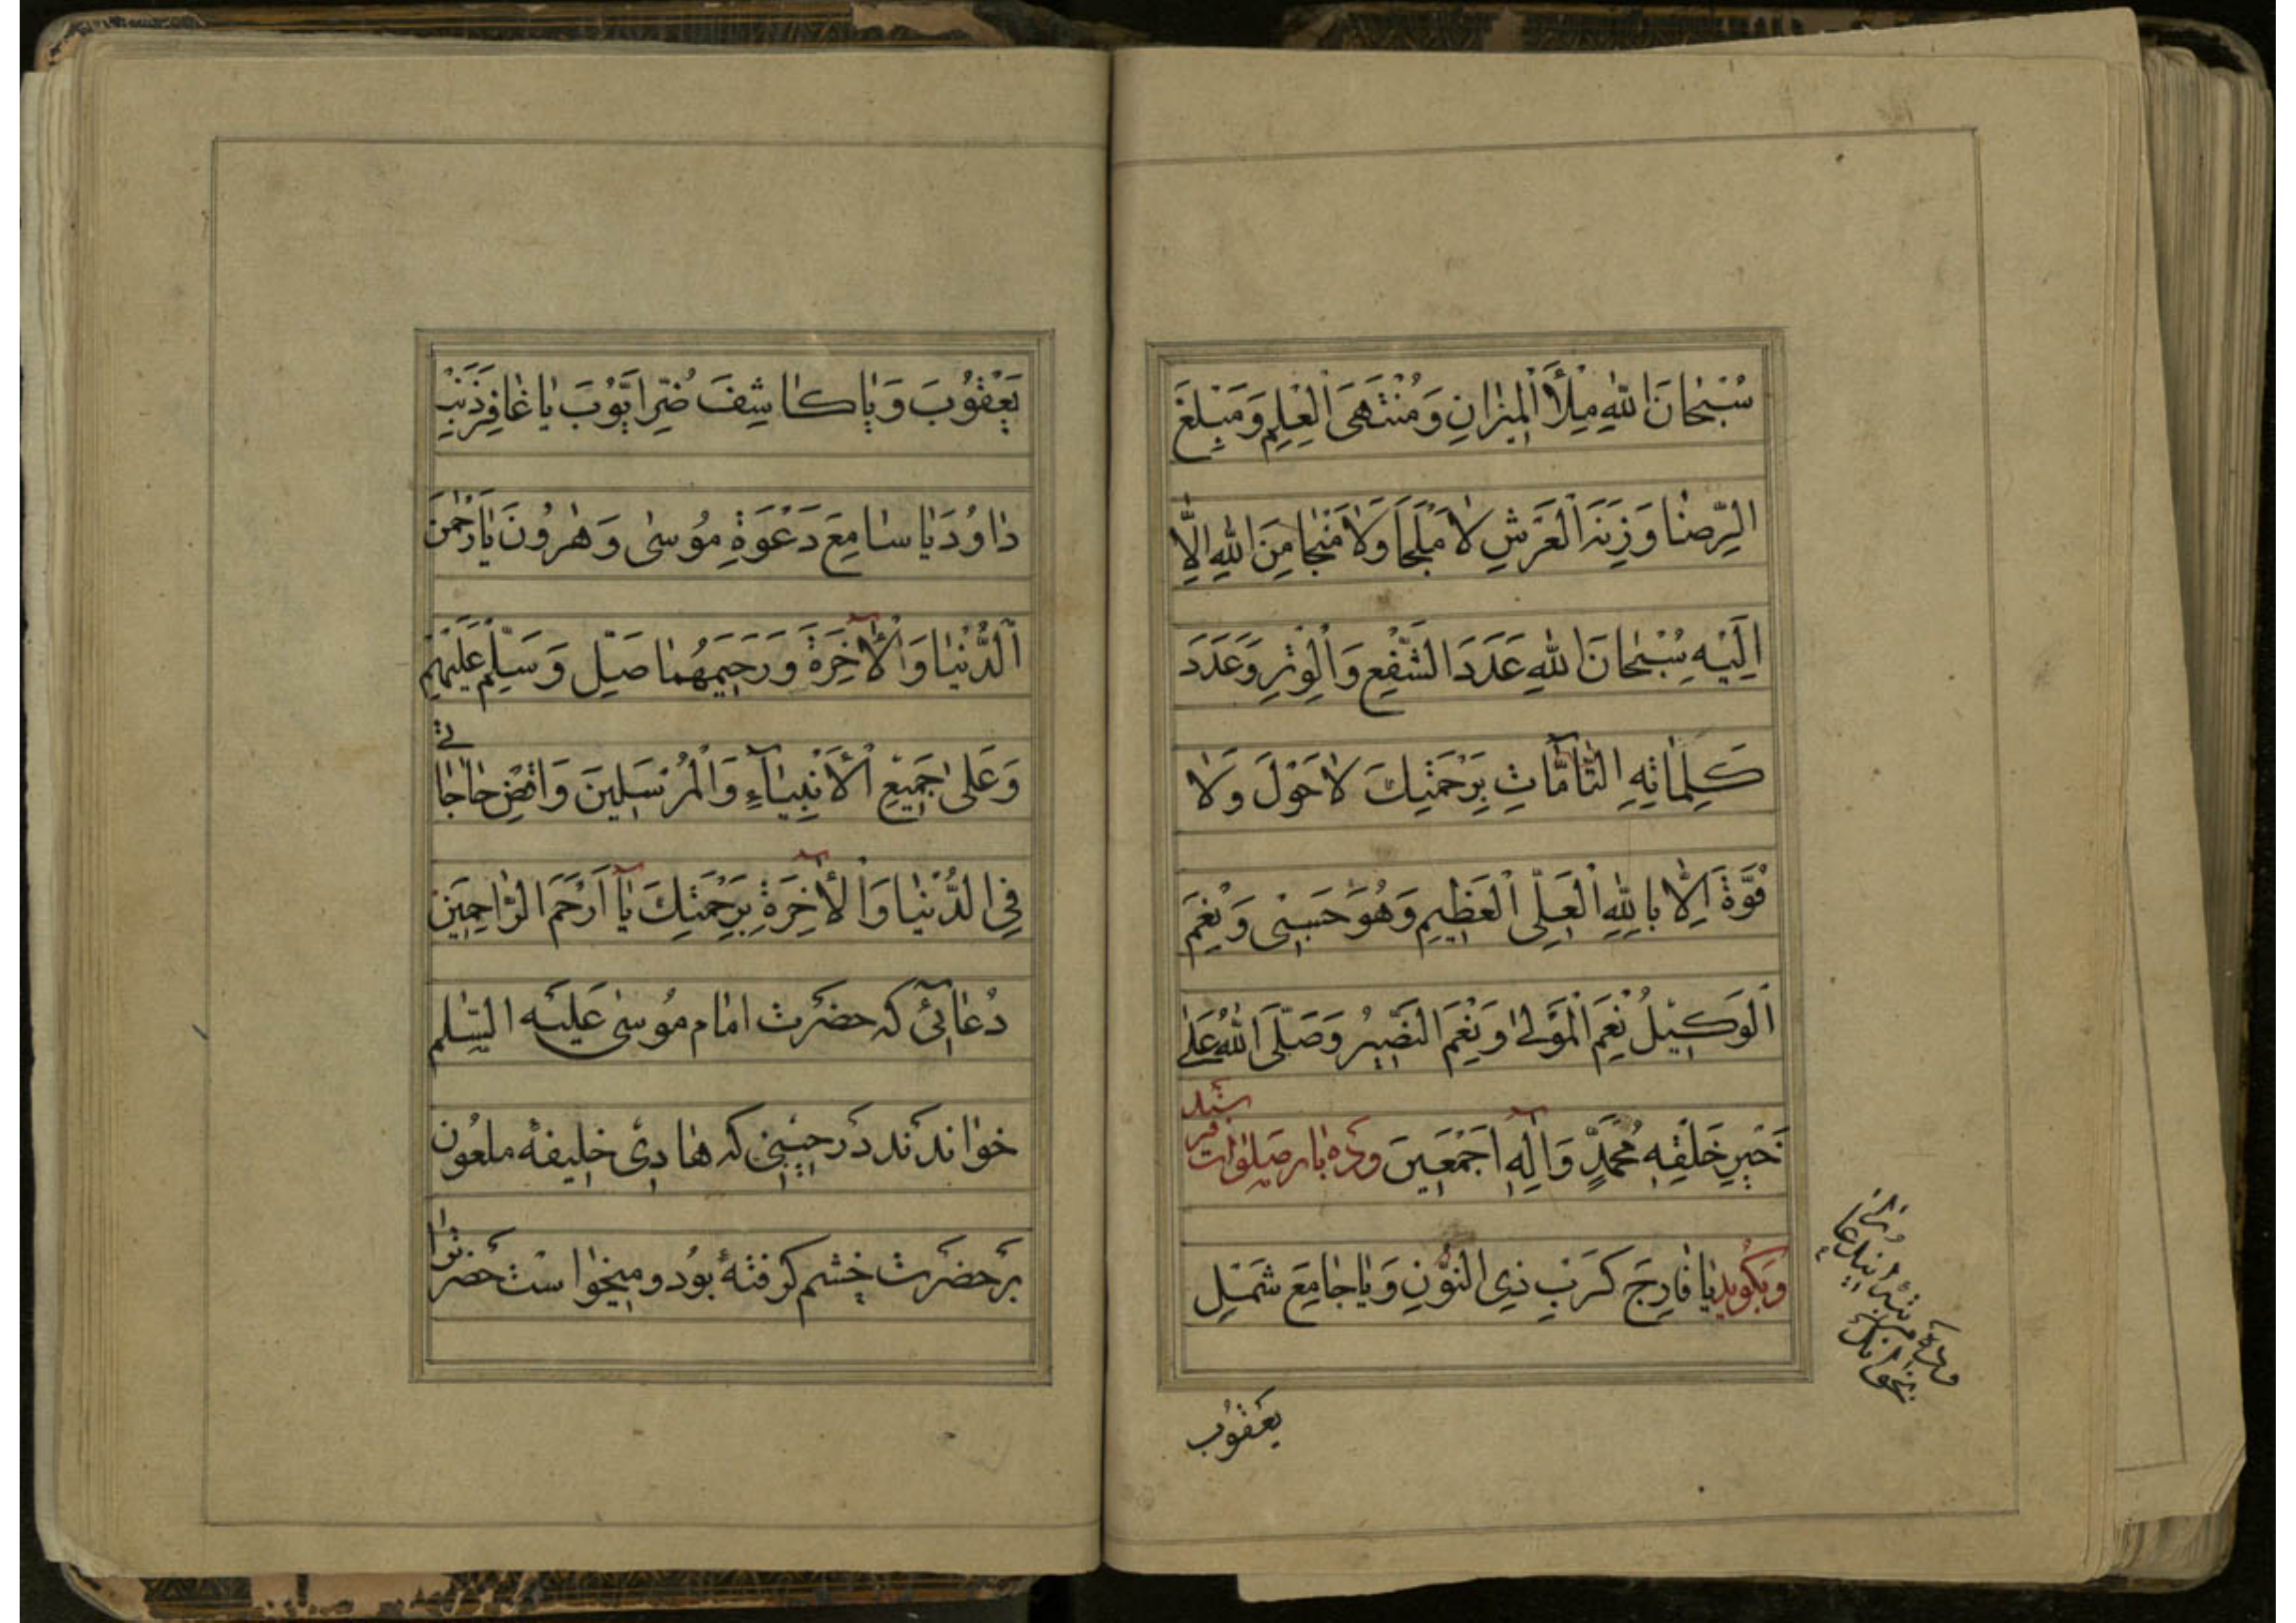 سُبْحَانَ اللهِ مِلْأَ الْمِيزَانِ وَمُنْتَهَى الْعِلْمِ وَمَبْلَغَ
الرِّضَا وَزِنَةَ الْعَرْشِ لَا مَلْجَأَ وَلَا مَنْجَا مِنَ اللهِ اِلَّا
اِلَيْهِ سُبْحَانَ اللهِ عَدَدَ الشَّفْعِ وَالْوِتْرِ وَعَدَدَ
كَلِمَاتِهِ التَّآمَّاتِ بِرَحْمَتِكَ لَا حَوْلَ وَلَا
قُوَّةَ اِلَّا بِاللهِ الْعَلِىِّ الْعَظِيمِ وَهُوَ حَسْبِى وَنِعْمَ
الْوَكِيْلُ نِعْمَ الْمَوْلٰى وَنِعْمَ النَّصِيرُ وَصَلَّى اللهُ عَلٰى
خَيْرِ خَلْقِهٖ مُحَمَّدٍ وَآلِهٖ اَجْمَعِينَ وده بار صلوات فرستد
وبگويد يَا فَارِجَ كَرْبِ ذِى النُّونِ وَيَا جَامِعَ شَمْلِ
يعقوب
يَعْقُوبَ وَيَا كَاشِفَ ضُرِّ اَيُّوبَ يَا غَافِرَ ذَنْبِ
دَاوُدَ يَا سَامِعَ دَعْوَةِ مُوسٰى وَهٰرُونَ يَا رَحْمٰنَ
الدُّنْيَا وَالْآخِرَةِ وَرَحِيمَهُمَا صَلِّ وَسَلِّمْ عَلَيْهِمْ
وَعَلٰى جَمِيعِ الْأَنْبِيَآءِ وَالْمُرْسَلِينَ وَاقْضِ حَاجَاتى
فِى الدُّنْيَا وَالْآخِرَةِ بِرَحْمَتِكَ يَآ اَرْحَمَ الرَّاحِمِينَ
دُعَائى كه حضرت امام موسى عليه السلم
خواندند در حينى كه هادى خليفۀ ملعون
بر حضرت خشم گرفته بود و ميخواست حضرترا